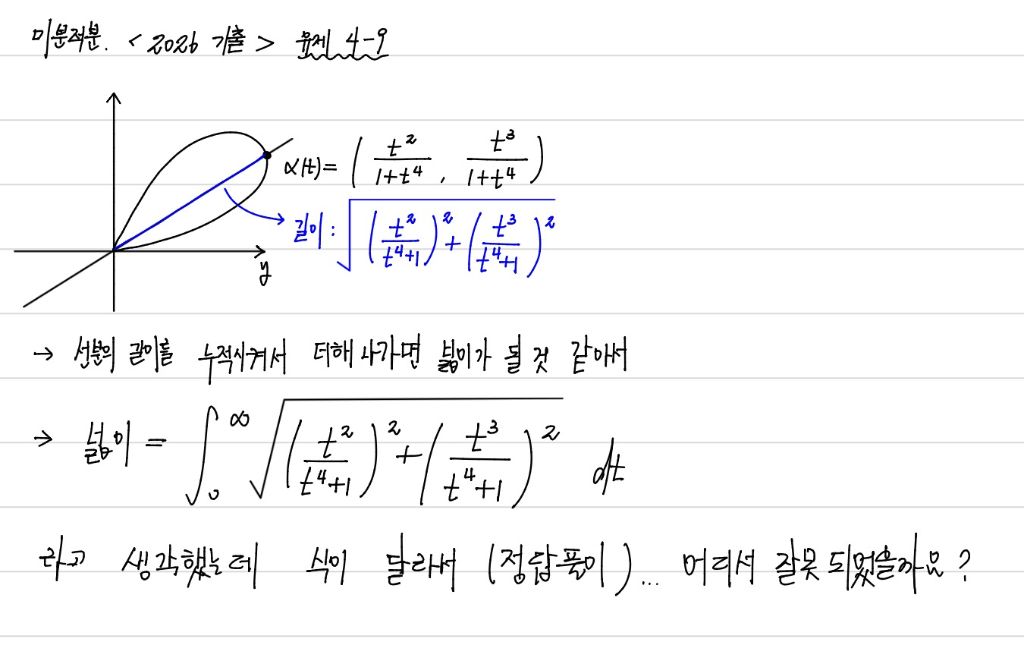 미분적분. <2026 기출> 유제 4-9
α(t) = ( t²/(1+t⁴) , t³/(1+t⁴) )
길이 : √( (t²/(t⁴+1))² + (t³/(t⁴+1))² )
y
→ 선분의 길이를 누적시켜서 더해 나가면 넓이가 될 것 같아서
→ 넓이 = ∫₀^∞ √( (t²/(t⁴+1))² + (t³/(t⁴+1))² ) dt
라고 생각했는데 식이 달라서 (정답풀이)... 어디서 잘못 되었을까요?